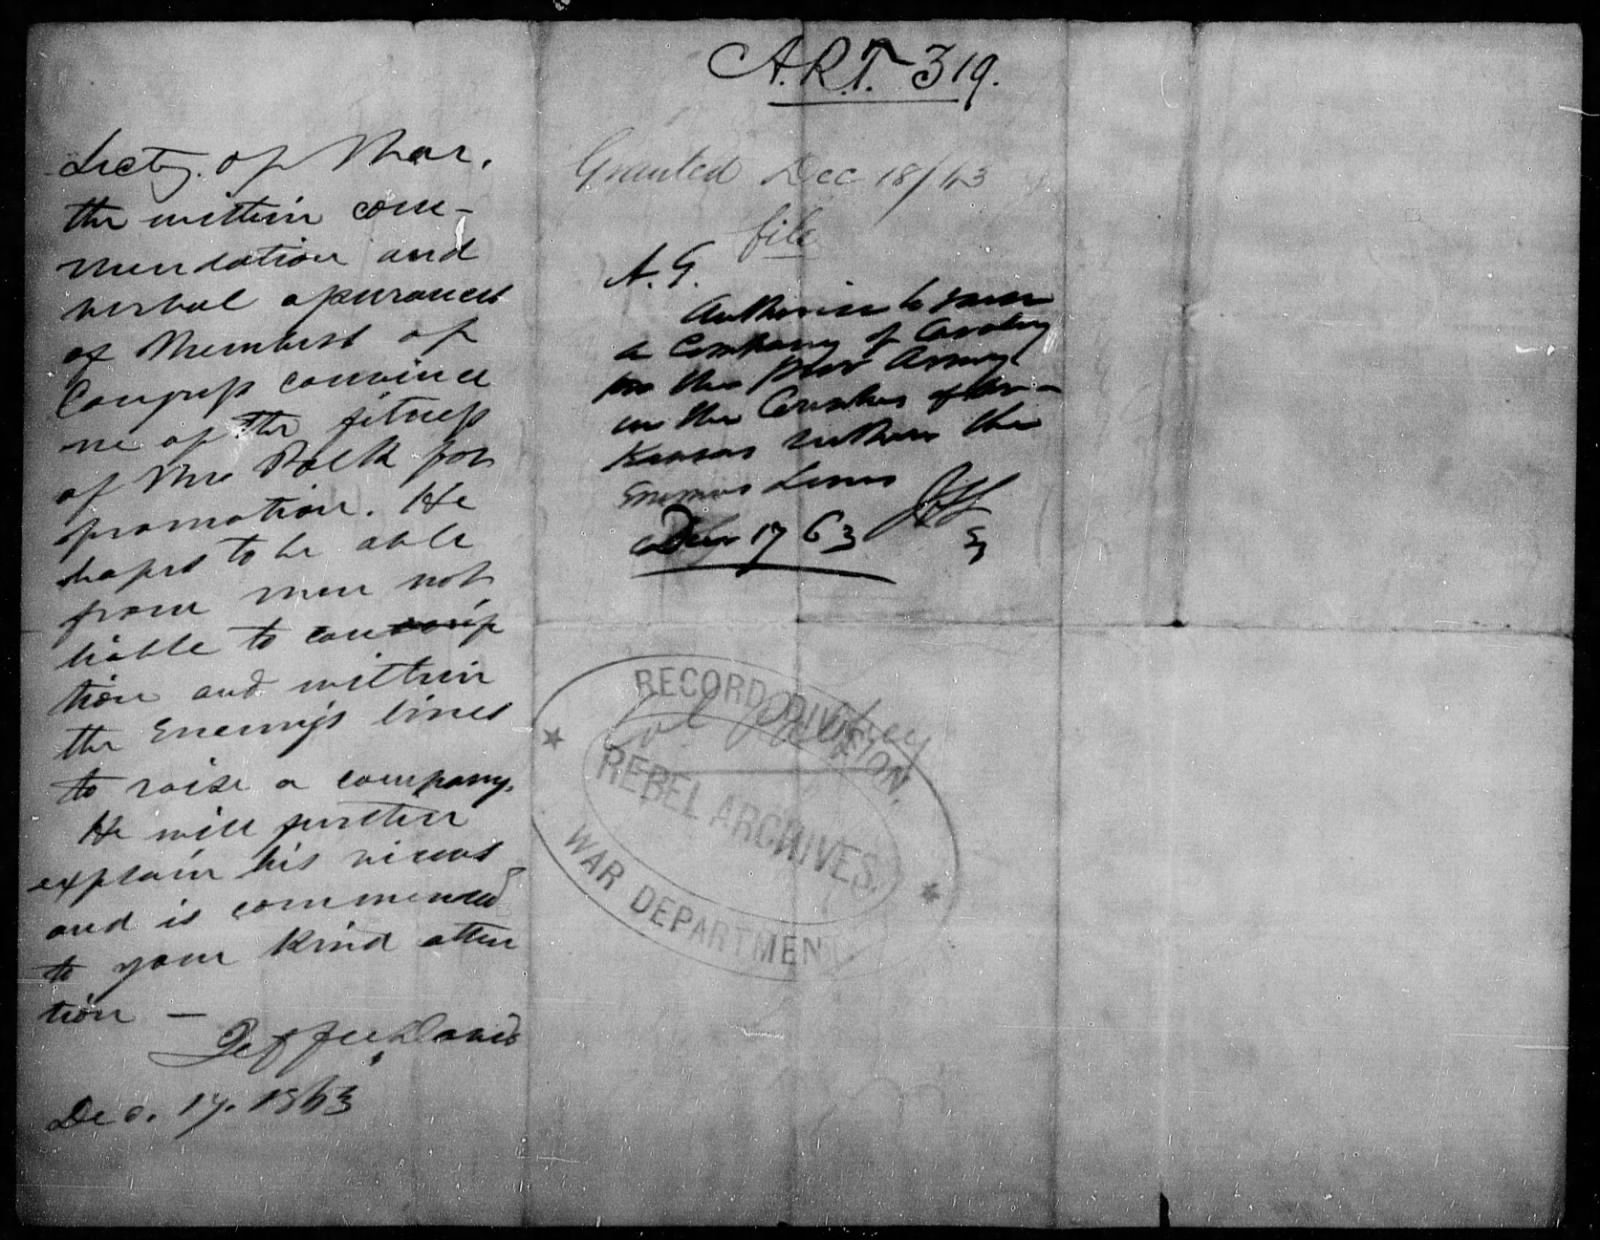 A.R.T. 319.
Secty. of War.
the within com-
mendation and
verbal assurances
of Members of
Congress convince
me of the fitness
of Mr Polk for
promotion. He
hopes to be able
from men not
liable to conscrip
tion and within
the Enemy's lines
to raise a company.
He will further
explain his views
and is commended
to your kind atten
tion —
Jeffer Davis
Dec. 17. 1863
Granted Dec 18/63
file
A. G.
Authorise to raise
a Company of Cavalry
for the Prov Army
in the Counties of Ar-
Kansas within the
Enemies Lines
Dec 17 63 JAS
S
Col Palfrey
RECORD DIVISION.
REBEL ARCHIVES.
WAR DEPARTMENT